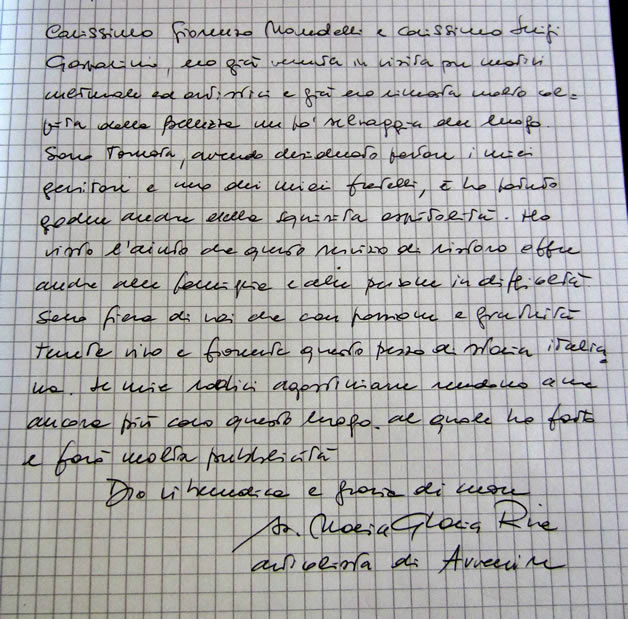 Carissimo Fiorenzo Mandelli e carissimo Luigi
Gasparini, ero già venuta in visita per motivi
culturali ed artistici e già ero rimasta molto col=
pita della bellezza un po' selvaggia del luogo.
Sono tornata, avendo desiderato portare i miei
genitori e uno dei miei fratelli, e ho potuto
godere anche della squisita ospitalità. Ho
visto l'aiuto che questo servizio di ristoro offre
anche alle famiglie e alle persone in difficoltà
Sono fiera di voi che con passione e gratuità
tenete vivo e fiorente questo pezzo di storia italia
na. Le mie radici agostiniane rendono a me
ancora più caro questo luogo. al quale ho fatto
e farò molta pubblicità
Dio vi benedica e grazie di cuore
Sr. Maria Gloria Riva
articolista di Avvenire